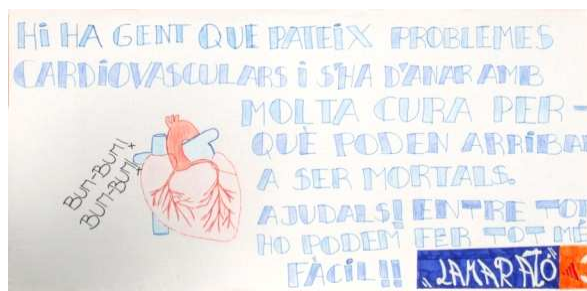 HI HA GENT QUE PATEIX PROBLEMES
CARDIOVASCULARS I S'HA D'ANAR AMB
MOLTA CURA PER-
QUÈ PODEN ARRIBA
A SER MORTALS.
BUM-BUM!
BUM-BUM!
AJUDALS! ENTRE TO
HO PODEM FER TOT MÉ
FÀCIL!!
"LAMARATÓ"